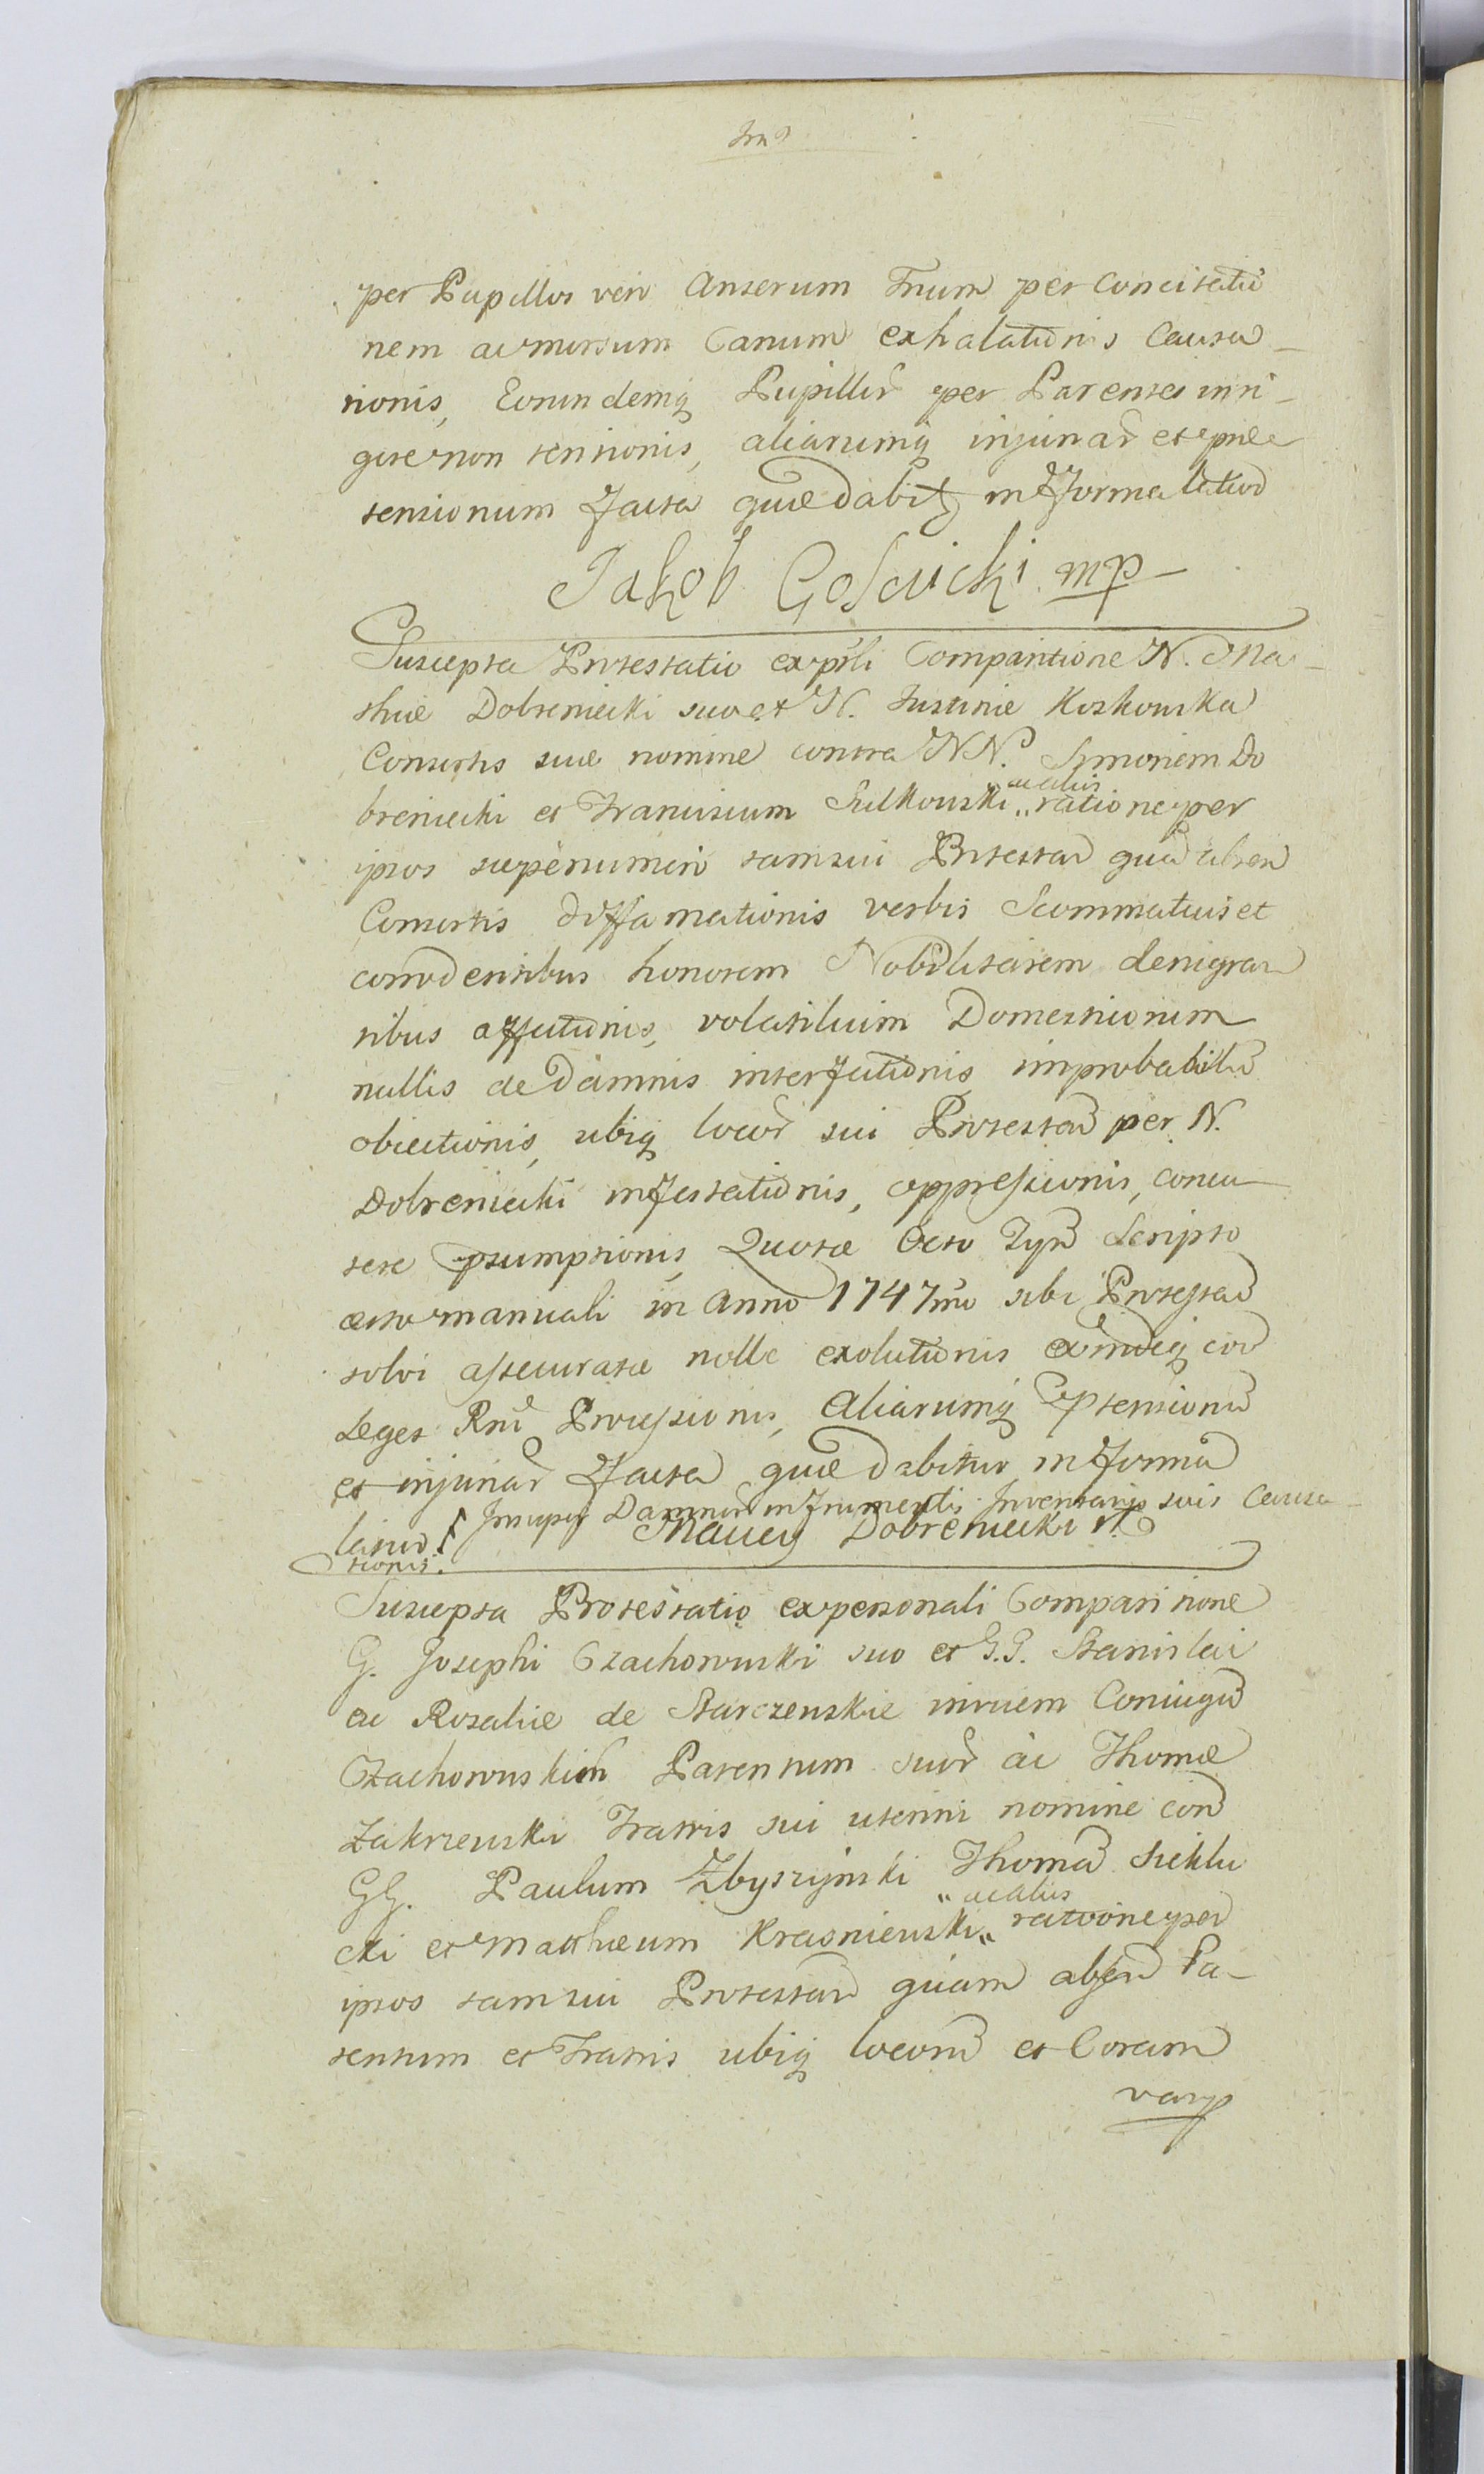 per Pupillos vero Anserum Trium per Concitatio
nem ac morsum Canum exhalationis Causa-
tionis, Eorundemq Pupillor per Parentes in ri-
gore non tentionis, aliarumq injuriar et præ
tensionum facta quæ dabitr in forma latior
Jakob Gościcki mp
Suscepta Protestatio ex psli Comparitione N. Ma-
thiæ Dobreniecki suo et N. Justinæ Koskowska
Consortis suæ nomine contra NN. Simonem Do
breniecki et Franciscum Sulkowski „ ratione per
ac alios
ipsos sæpenumero tam sui Protestan quam absen
Consortis diffamationis verbis Scommaticis et
corrodentibus honorem Nobilitarem denigran
tibus affectionis, volatilium Domesticorum
nullis de damnis interfectionis improbabilis
obiectionis, ubiq locor sui Protestan per N.
Dobreniecki infestationis, oppressionis, concu
tere præsumptionis, Quotæ Octo Tymf Scripto
manuali in Anno 1747mo sibi Protestan
solvi assecuratæ nolle exolutionis exindeq con
Leges Rni Processionis, Aliarumq prætensionum
et injuriar facta quæ dabitur in forma
Insuper Damnor in frumentis Inventarys suis Causa-
latior
Maciey Dobreniecki
tionis.
Suscepta Protestatio ex personali Comparitione
G. Josephi Czachorowski suo et G.G. Stanislai
ac Rosaliæ de Starczewskie invicem Coniugum
Czachorowskich Parentum suor ac Thomæ
Zakrzewski Fratris sui uterini nomine con
GG. Paulum Zbyszynski Thomam Siklu
„ ac alios
cki et Mathæum Krasniewski „ ratione per
ipsos tam sui Protestan quam absen Pa-
rentum et Fratris ubiq locorum et Coram
varys